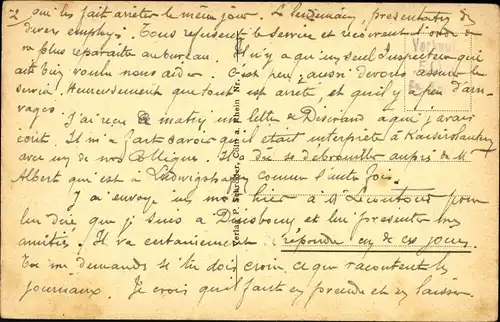 2 qui les fait arrêter le même jour. Le lendemain, présentation de
divers employés. Tous refusent le service et reçoivent ordre de
ne plus reparaître au bureau. Il n'y a qu'un seul Inspecteur qui
ait bien voulu nous aider. C'est peu, aussi devons assurer le
service. Heureusement que tout est arrêté, et qu'il y a peu d'arri-
vages.
J'ai reçu ce matin une lettre de à qui j'avais
écrit. Il m'a fait savoir qu'il était interprète à Kaiserslautern
avec un de nos Collègues. Il a dû se débrouiller auprès de Mr
Albert qui est à Ludwigshafen comme l'autre fois.
J'ai envoyé un mot hier à Mr Lecoutour pour
lui dire que je suis à Duisbourg et lui présenter mes
amitiés. Il va certainement répondre un de ces jours.
Tu me demandes si tu dois croire ce que racontent les
journaux. Je crois qu'il faut en prendre et en laisser.
Verlag P. Schröder, Cöln a. Rhein